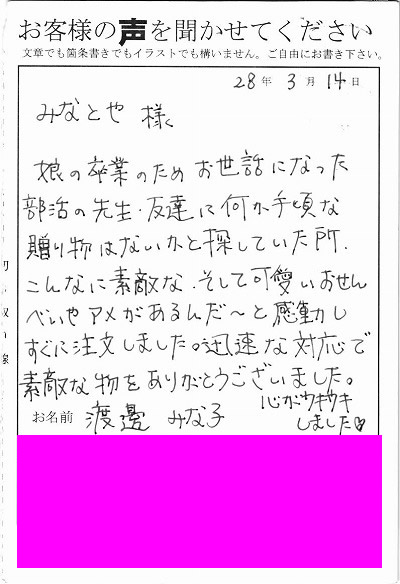 お客様の声を聞かせてください
文章でも箇条書きでもイラストでも構いません。ご自由にお書き下さい。
28年 3月 14日
みなとや 様
娘の卒業のため お世話になった
部活の先生・友達に何か手頃な
贈り物はないかと探していた所、
こんなに素敵な、そして可愛いおせん
べいやアメがあるんだ〜と感動し
すぐに注文しました。迅速な対応で
素敵な物をありがとうございました。
心がウキウキ
しました♡
お名前 渡邉 みな子